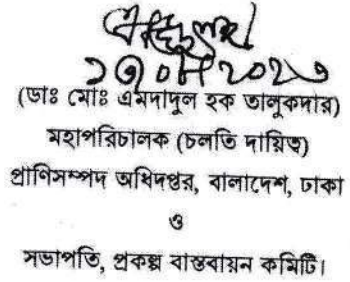 (ডাঃ মোঃ এমদাদুল হক তালুকদার)
মহাপরিচালক (চলতি দায়িত্ব)
প্রাণিসম্পদ অধিদপ্তর, বালাদেশ, ঢাকা
ও
সভাপতি, প্রকল্প বাস্তবায়ন কমিটি।